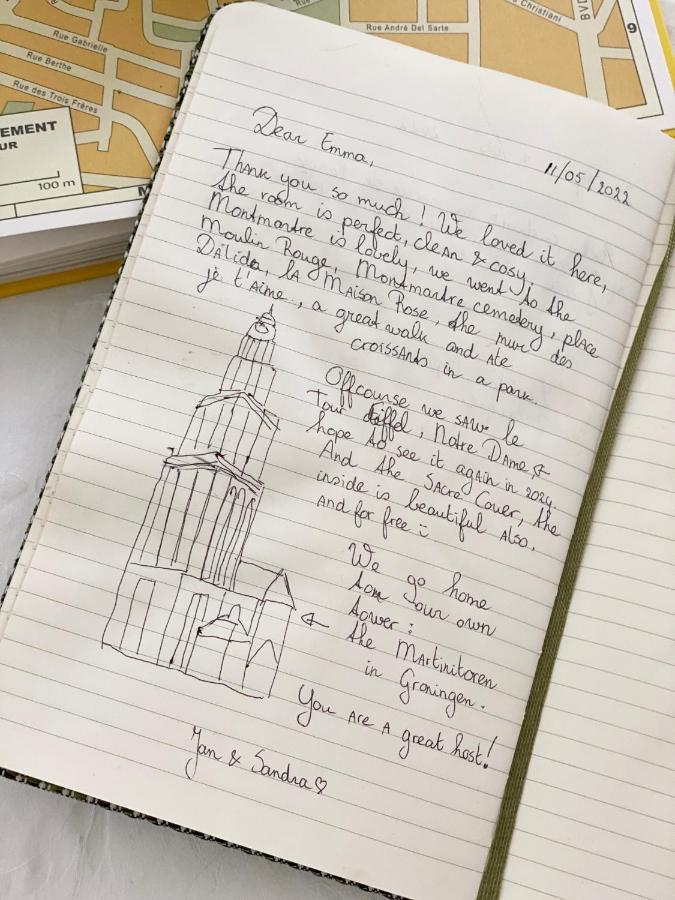 Rue Gabrielle
Rue Berthe
Rue des Trois Frères
EMENT
UR
100 m
Rue André Del Sarte
Christiani
BVD
9
11/05/2022
Dear Emma,
Thank you so much! We loved it here,
the room is perfect, clean & cosy.
Montmartre is lovely, we went to the
Moulin Rouge, Montmartre cemetery, place
Dalida, la Maison Rose, the mur des
je t'aime, a great walk and ate
croissants in a park.
Offcourse we saw le
Tour Eiffel, Notre Dame &
hope to see it again in 2024.
And the Sacre Couer, the
inside is beautiful also.
and for free :
We go home
to our own
tower:
the Martinitoren
in Groningen.
You are a great host!
Jan & Sandra ♡